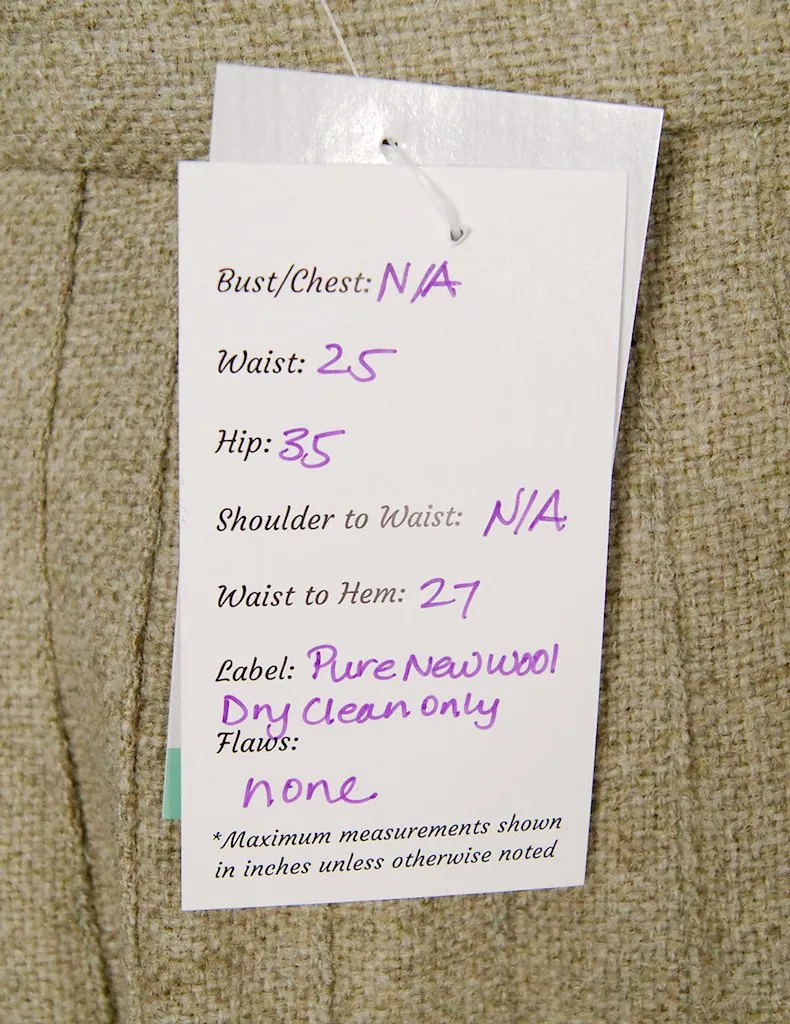 Bust/Chest: N/A
Waist: 25
Hip: 35
Shoulder to Waist: N/A
Waist to Hem: 27
Label: Pure New Wool
Dry Clean Only
Flaws:
none
*Maximum measurements shown
in inches unless otherwise noted